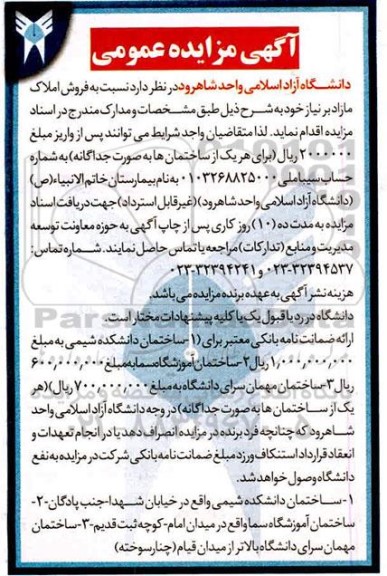 آگهی مزایده عمومی
دانشگاه آزاد اسلامی واحد شاهرود در نظر دارد نسبت به فروش املاک
مازاد بر نیاز خود به شرح ذیل طبق مشخصات و مدارک مندرج در اسناد
مزایده اقدام نماید. لذا متقاضیان واجد شرایط می توانند پس از واریز مبلغ
۲۰۰۰۰۰۰ ریال (برای هر یک از ساختمان ها به صورت جداگانه) به شماره
حساب سیبا ملی ۰۱۰۳۲۶۸۸۲۵۰۰۰ به نام بیمارستان خاتم الانبیاء(ص)
(دانشگاه آزاد اسلامی واحد شاهرود) (غیر قابل استرداد) جهت دریافت اسناد
مزایده به مدت ده (۱۰) روز کاری پس از چاپ آگهی به حوزه معاونت توسعه
مدیریت و منابع (تدارکات) مراجعه یا تماس حاصل نمایند. شماره تماس:
۰۲۳-۳۲۳۹۴۵۳۷ و ۰۲۳-۳۲۳۹۴۲۴۱
هزینه نشر آگهی به عهده برنده مزایده می باشد.
دانشگاه در رد یا قبول یک یا کلیه پیشنهادات مختار است.
ارائه ضمانت نامه بانکی معتبر برای (۱-ساختمان دانشکده شیمی به مبلغ
۱,۰۰۰,۰۰۰,۰۰۰ ریال ۲-ساختمان آموزشگاه سما به مبلغ ۶۰۰,۰۰۰,۰۰۰
ریال ۳-ساختمان مهمان سرای دانشگاه به مبلغ ۷۰۰,۰۰۰,۰۰۰ ریال) (هر
یک از ساختمان ها به صورت جداگانه) در وجه دانشگاه آزاد اسلامی واحد
شاهرود که چنانچه فرد برنده در مزایده انصراف دهد یا در انجام تعهدات و
انعقاد قرارداد استنکاف ورزد مبلغ ضمانت نامه بانکی شرکت در مزایده به نفع
دانشگاه وصول خواهد شد.
۱-ساختمان دانشکده شیمی واقع در خیابان شهدا-جنب پادگان-۲-
ساختمان آموزشگاه سما واقع در میدان امام-کوچه ثبت قدیم-۳-ساختمان
مهمان سرای دانشگاه بالاتر از میدان قیام (چنارسوخته)